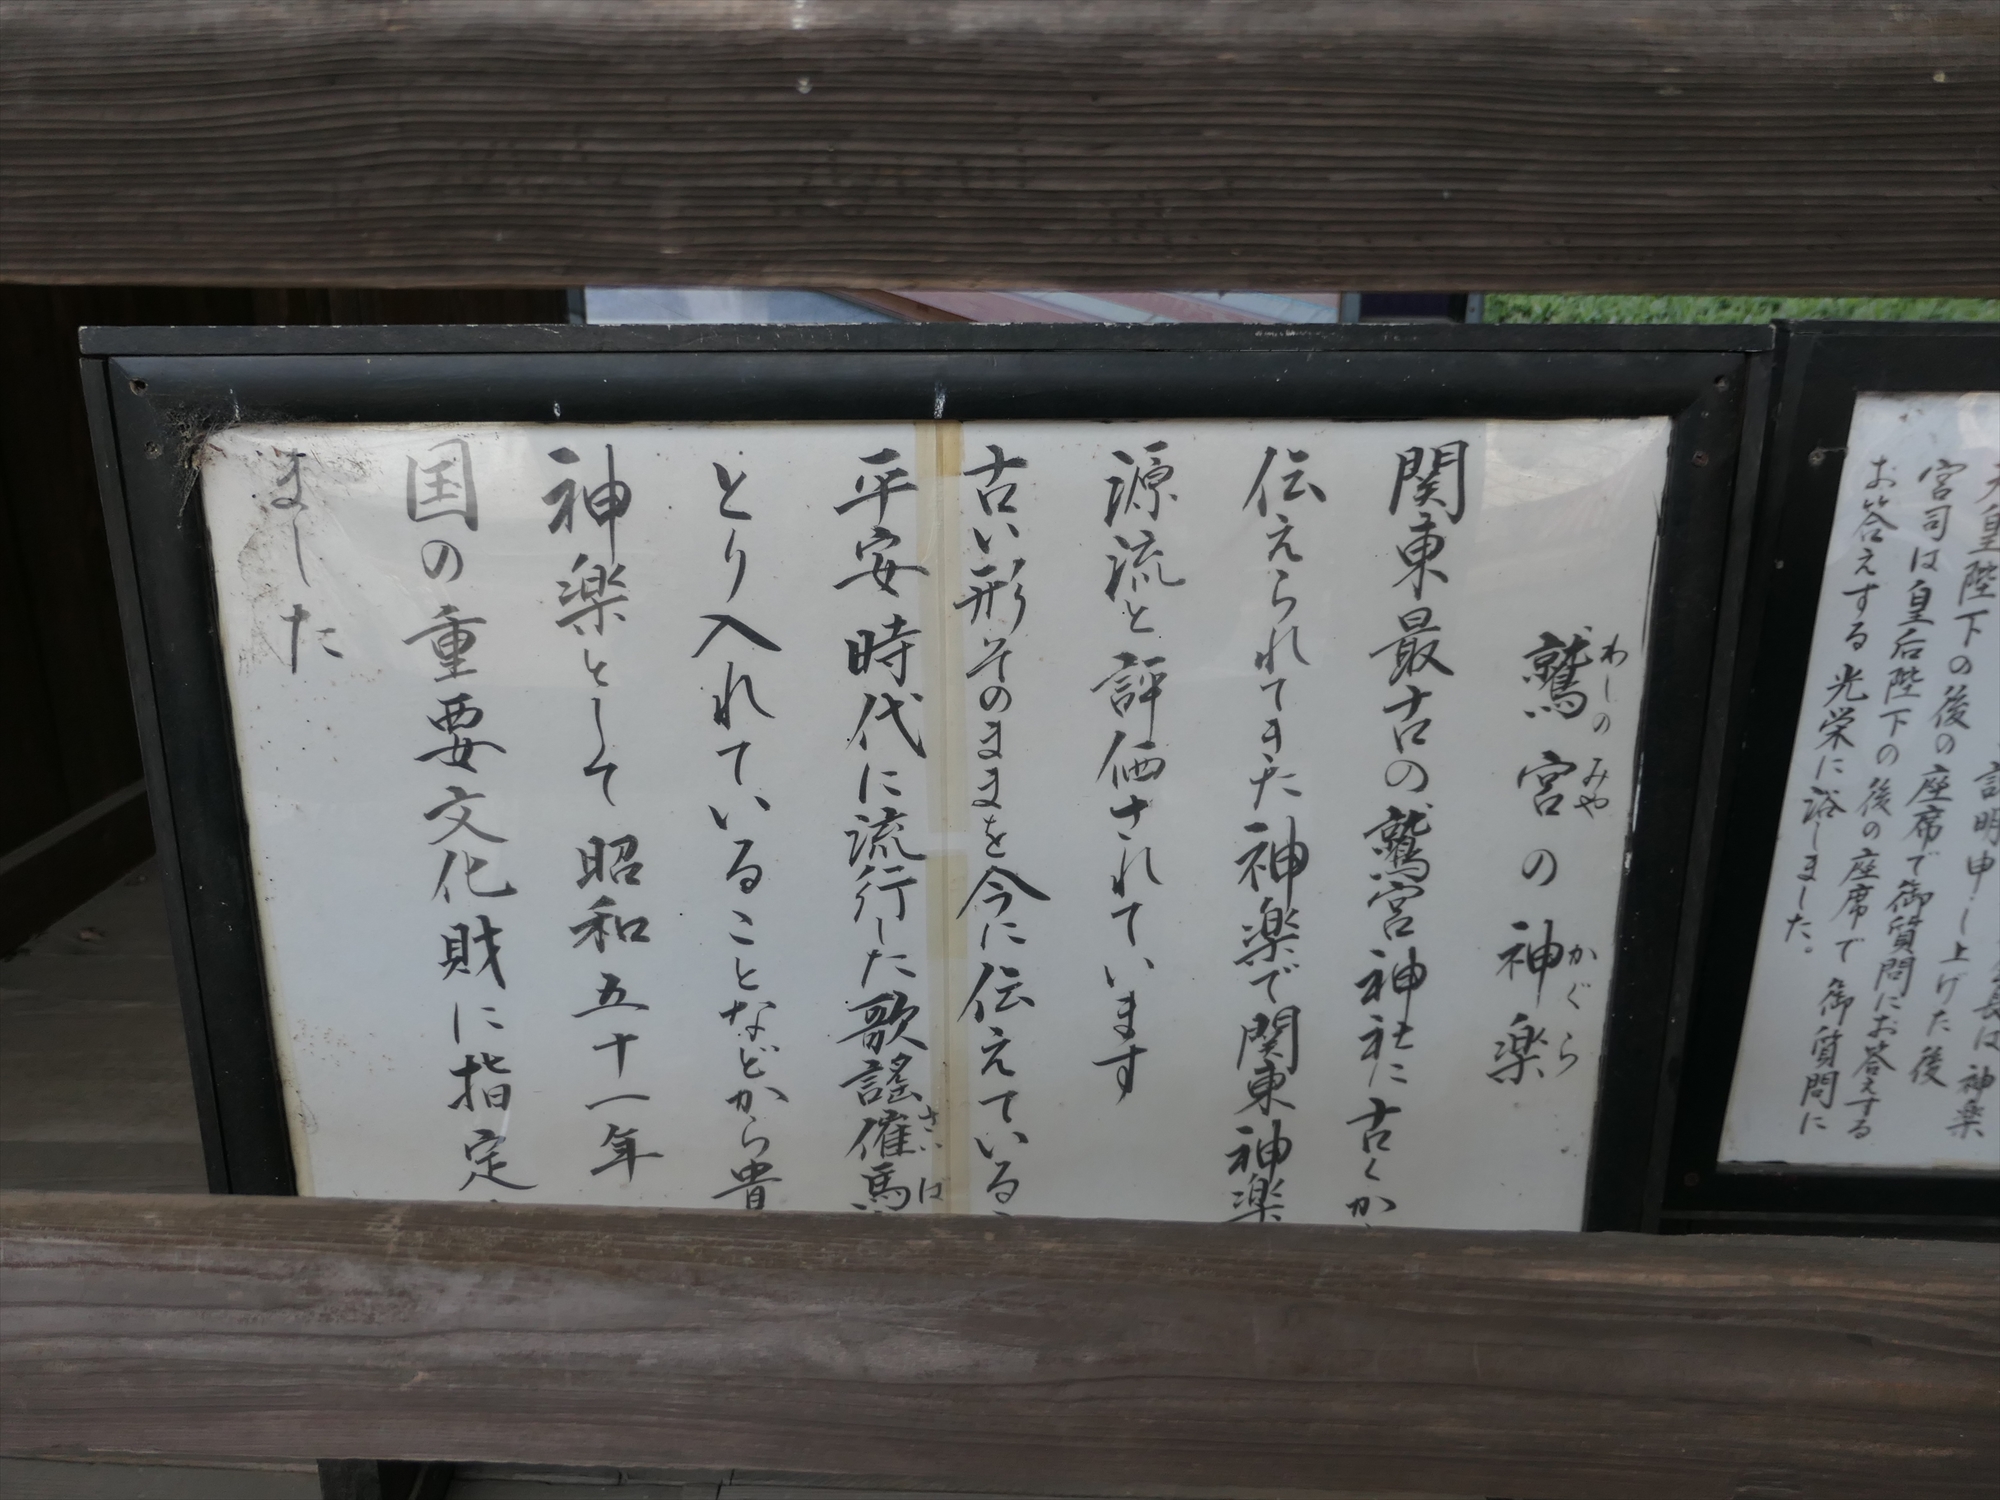 天皇陛下の後の座席で御質問にお答えする
宮司は皇后陛下の後の座席で御質問に
お答えする光栄に浴しました。
鷲宮の神楽
わしのみや かぐら
関東最古の鷲宮神社に古くか
伝えられてきた神楽で関東神楽
源流と評価されています
古い形そのままを今に伝えている
平安時代に流行した歌謡催馬
さいば
とり入れていることなどから貴
神楽として昭和五十一年
国の重要文化財に指定
ました